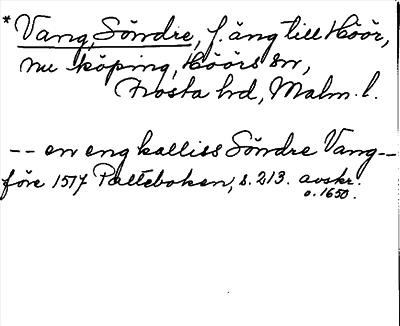 *Vang, Söndre, f. äng till Höör,
nu köping, Höörs sn,
Frosta hd, Malm. l.
-- en eng kalliss Söndre Vang --
före 1517 Palteboken, s. 213. avskr.
o. 1650.